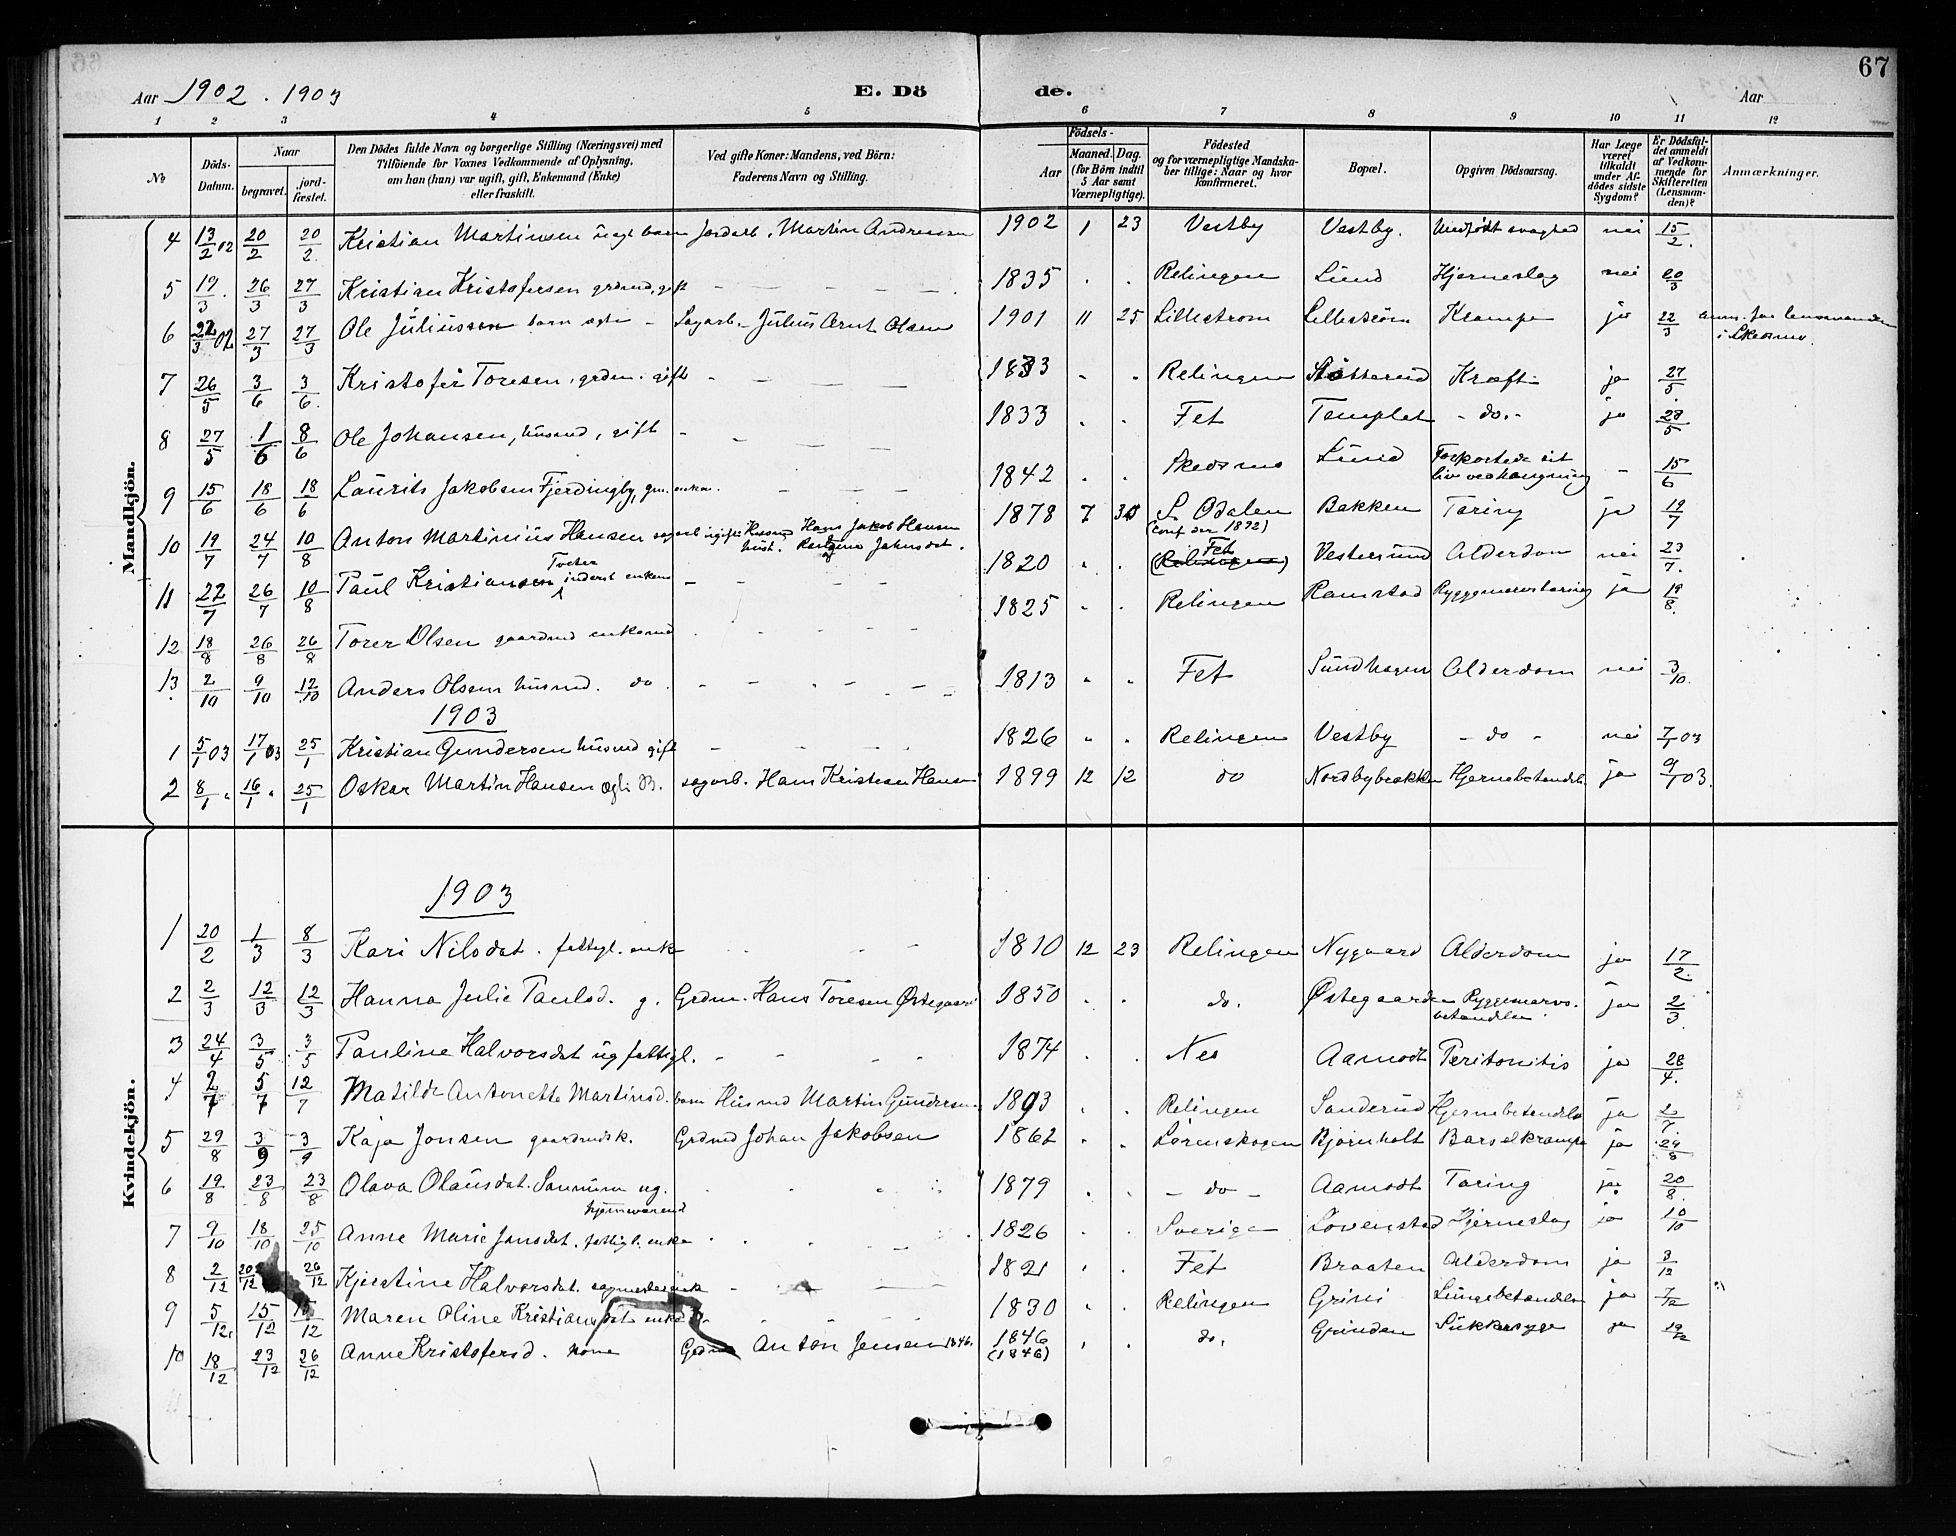 67
Aar 1902 . 1903 E. Dö de. Aar
1 2 3 4 5 6 7 8 9 10 11 12
No Döds-Datum. Naar begravet. jord-fæstet. Den Dödes fulde Navn og borgerlige Stilling (Næringsvei) med Tilföiende for Voxnes Vedkommende af Oplysning, om han (hun) var ugift, gift, Enkemand (Enke) eller fraskilt. Ved gifte Koner: Mandens, ved Börn: Faderens Navn og Stilling. Födsels- Aar Maaned. Dag. (for Börn indtil 5 Aar samt Værnepligtige). Födested og for værnepligtige Mandska-ber tillige: Naar og hvor konfirmeret. Bopæl. Opgiven Dödsaarsag. Har Læge været tilkaldt under Af-dödes sidste Sygdom? Er Dödsfal-det anmeldt af Vedkom-mende for Skifteretten (Lensman-den)? Anmærkninger.
Mandkjön.
4 13/2 02 20/2 20/2 Kristian Martinsen uegt barn Jordarb. Martin Andresen 1902 1 23 Vestby Vestby. Medfødt svaghed nei 15/2.
5 19/3 26/3 27/3 Kristian Kristofersen grdmd, gift 1835 Relingen Lund Hjerneslag nei 20/3
6 22/3 02 27/3 27/3 Ole Juliussen barn egte Sagarb. Julius Arnt Olsen 1901 11 25 Lillestrøm Lillestrøm Krampe ja 22/3 anm. for lensmanden i Skedsmo.
7 26/5 3/6 3/6. Kristofer Toresen, grdm. gift 1833 Relingen Kræft ja 27/5
8 27/5 1/6 8/6 Ole Johansen, husmd, gift 1833 Fet Templet - do. - ja 28/5
9 15/6 18/6 18/6 Laurits Jakobsen Fjerdingby, gm. enkem. 1842 Skedsmo Lund Forkortede sit liv ved hængning - 15/6
10 19/7 24/7 10/8 Anton Martinius Hansen sagarb ugift Husmd Hans Jakob Hansen hust. Jahnsdat. 1878 7 30 S. Odalen (conf. der 1892) Bakken Tæring ja 19/7
11 22/7 26/7 10/8 Paul Kristiansen Tveter inderst enkem 1820 (Relingen) Fet Vesterund Alderdom nei 23/7.
12 18/8 26/8 26/8 Torer Olsen gaardmd enkemd 1825 Relingen Ramstad Ryggemarvstæring ja 19/8.
13 2/10 9/10 12/10 Anders Olsen husmd. do 1813 Fet Sundhagen Alderdom nei 3/10.
1903
1 5/1 03 17/1 03 25/1 Kristian Gundersen husmd gift 1826 Relingen Vestby - do - nei 7/1 03
2 8/1 16/1 25/1 Oskar Martin Hansen egte B. sagarb. Hans Kristian Hansen 1899 12 12 do Nordbybrække Hjernebetændels. ja 9/1 03.
Kvindekjön.
1903
1 20/2 1/3 8/3 Kari Nilsdat. fattigl. enk 1810 12 23 Relingen Nygaard Alderdom ja 17/2.
2 2/3 12/3 12/3 Hanna Julie Paulsd. g. Grdm. Hans Toresen Østegaard 1850 do. Østegaarden Ryggemarvs-betændelse. ja 2/3
3 24/4 3/5 3/5 Pauline Halvorsdat ug fattigl. 1874 Nes Aamodt Peritonitis ja 28/4.
4 2/7 5/7 12/7 Matilde Antonette Martinsd. barn Husmd Martin Gundersen 1893 Relingen Sanderud Hjernebetændelse ja 2/7
5 29/8 3/9 3/9 Kaja Jonsen gaardmdsk. Grdmd Johan Jakobsen 1862 Lørenskogen Bjørnholt Barselkrampe ja 29/8
6 19/8 23/8 23/8 Olava Olausdat. ug. hjemmeværend 1879 - do - Aamodt Tæring ja. 20/8.
7 9/10 18/10 25/10 Anne Marie Jansdat. fattigl. enke 1826 Sverige Lovenstad Hjerneslag ja 10/10
8 2/12 20/12 26/12 Kjerstine Halvorsdat. sagmesterenk 1821 Fet Braaten Alderdom ja 3/12
9 5/12. 15/12 15/12 Maren Oline Kristiansdat enke 1830 Relingen Grini Lungebetændelse ja 7/12
10 18/12 23/12 26/12 Anne Kristofersd. kone Grdmd Anton Jensen 1846. 1846 (1846) do. Grinden Sukkersyge ja 19/12